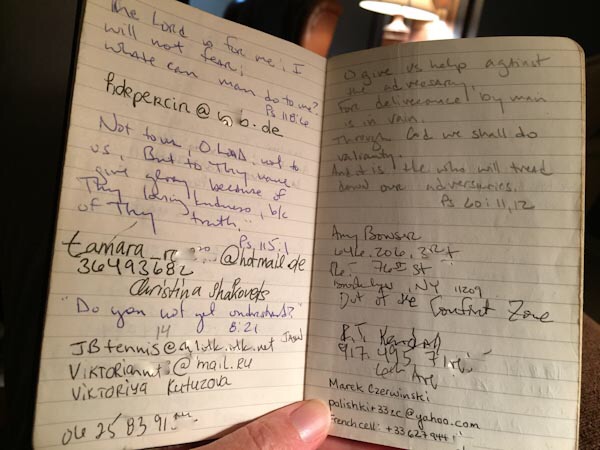 The Lord is for me; I
will not fear;
What can man do to me?
Ps 118:6
hdepercin@ .de
Not to us, O LORD, not to
us, But to Thy name
give glory, because of
Thy loving kindness, b/c
of Thy truth."
Ps, 115:1
tamara_ @hotmail.de
36493682
Christina
"Do you not yet understand?"
8:21
14
JBtennis@ .net Jason
@mail.ru
Viktoriya Kutuzova
06 25 83 91
O give us help against
the adversary,
For deliverance by man
is in vain.
Through God we shall do
valiantly,
And it is He who will tread
down our adversaries.
Ps 60:11,12
Amy Bowser
646.206.
76th St
Brooklyn, NY 11209
Out of the Comfort Zone
R.T. Kendall
917.495.
Marek Czerwinski
polishkit33cc@yahoo.com
French cell: +33627944